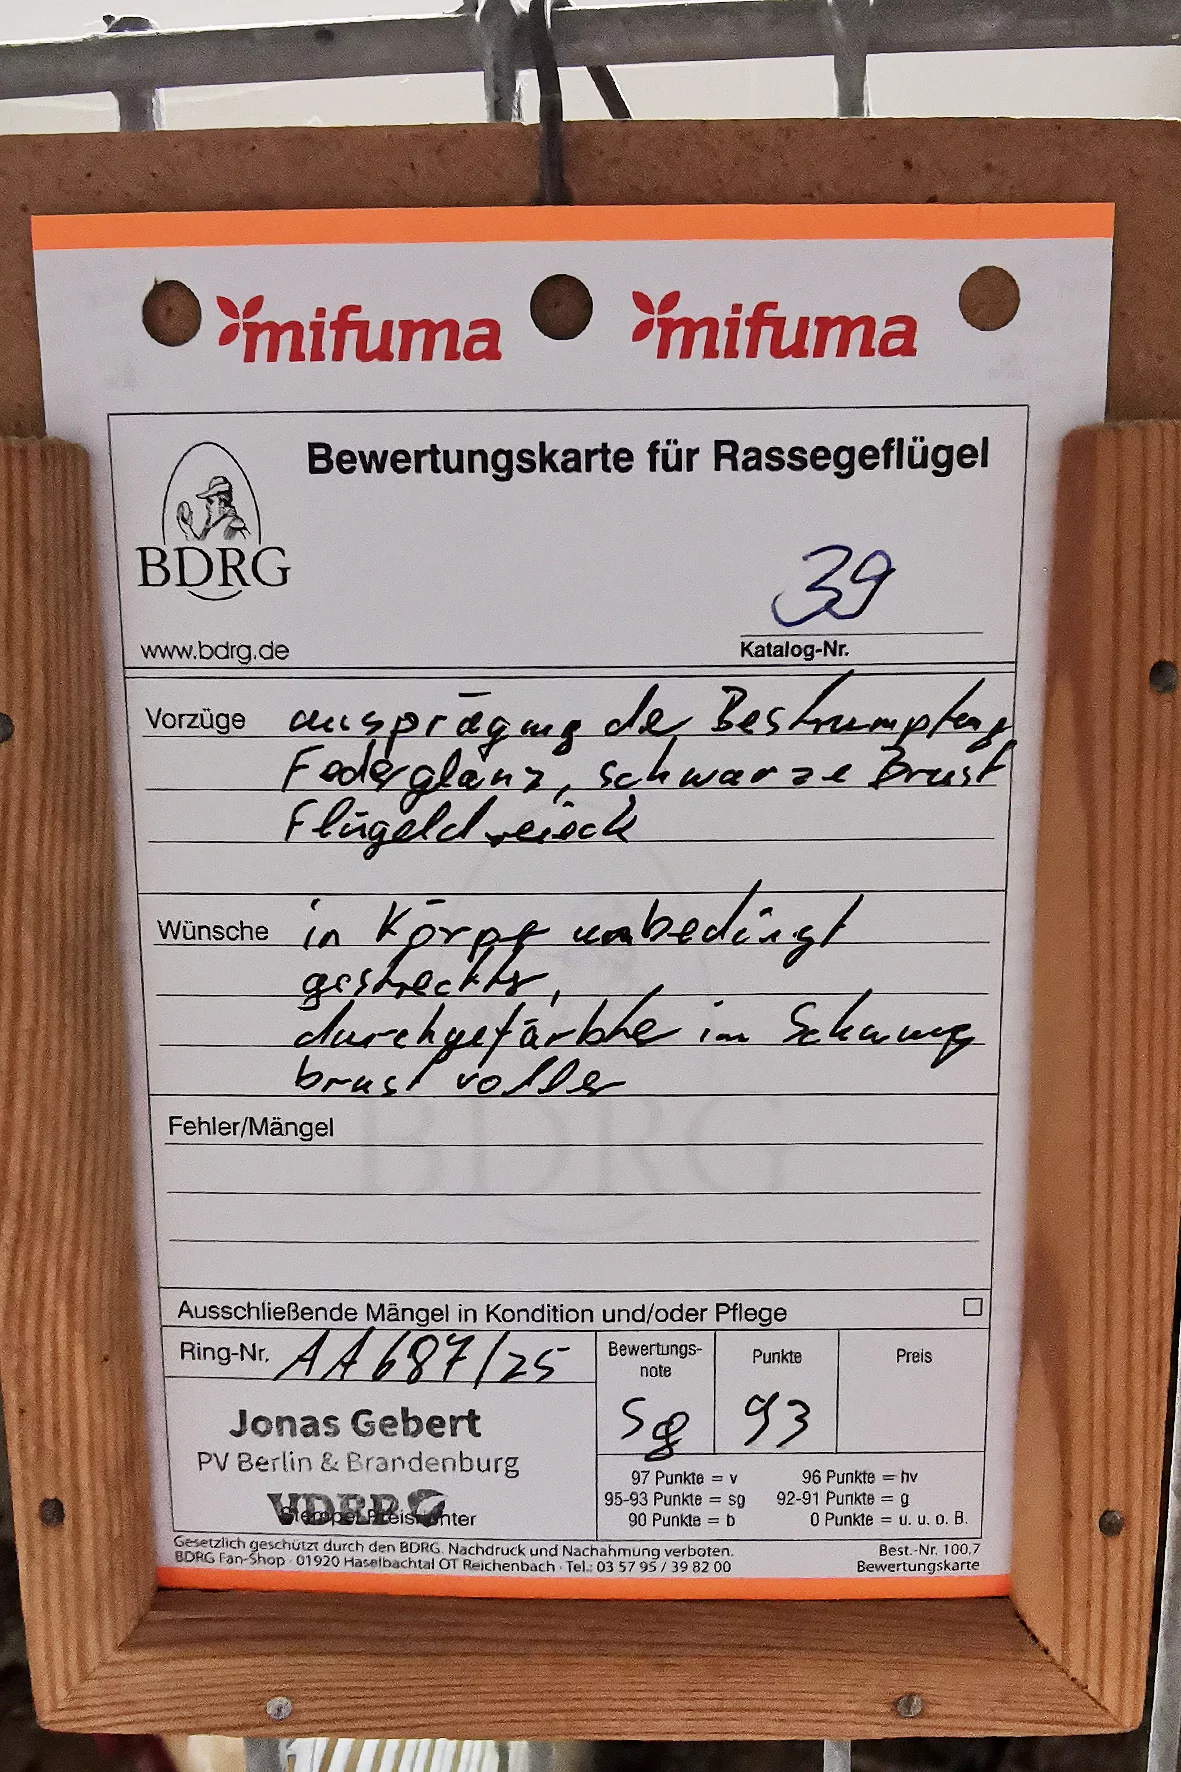 mifuma mifuma
Bewertungskarte für Rassegeflügel
BDRG
www.bdrg.de
39
Katalog-Nr.
Vorzüge ausprägung de Bestrumpfung
Federglanz, schwarze Brust
Flügeldreieck
Wünsche in Körper unbedingt
gestreckter,
durchgefärbter im Schwung
brust voller
BDRG
Fehler/Mängel
Ausschließende Mängel in Kondition und/oder Pflege
Ring-Nr. AA687/25
Bewertungs-
note
Punkte
Preis
sg 93
Jonas Gebert
PV Berlin & Brandenburg
97 Punkte = v 96 Punkte = hv
95-93 Punkte = sg 92-91 Punkte = g
90 Punkte = b 0 Punkte = u. u. o. B.
Gesetzlich geschützt durch den BDRG. Nachdruck und Nachahmung verboten.
BDRG Fan-Shop · 01920 Haselbachtal OT Reichenbach · Tel.: 03 57 95 / 39 82 00
Best.-Nr. 100.7
Bewertungskarte